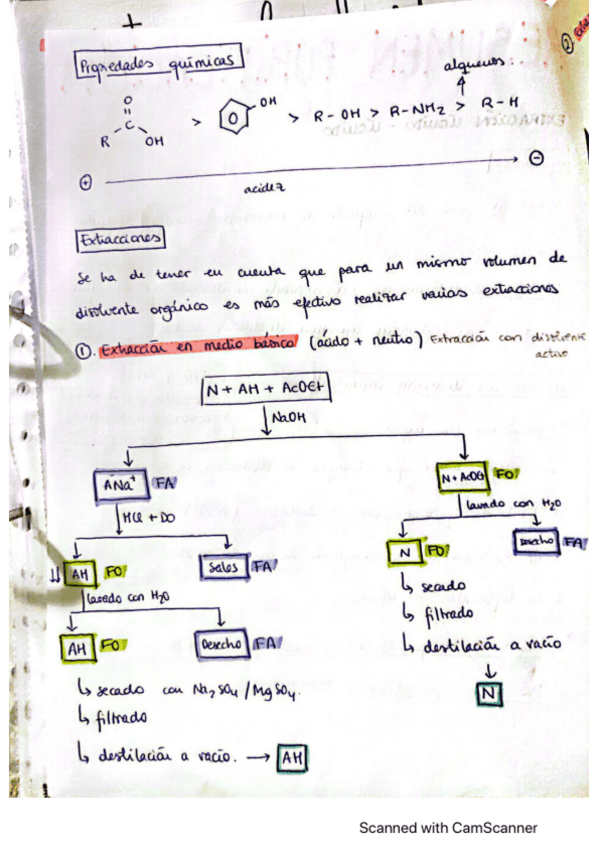 Propiedades químicas
alquenos.
O
R - C - OH > OH > R-OH > R-NH₂ > R-H
⊕ ⊖
acidez
Extracciones
Se ha de tener en cuenta que para un mismo volumen de
disolvente orgánico es más efectivo realizar varias extracciones
①. Extracción en medio básico (ácido + neutro) Extracción con disolvente
activo
N + AH + AcOEt
NaOH
A⁻Na⁺ FA
N + AcOEt FO
HCl + DO
lavado con H₂O
AH FO
Sales FA
N FO
Desecho FA
lavado con H₂O
AH FO
Desecho FA
↳ secado
↳ filtrado
↳ destilación a vacío
N
↳ secado con Na₂SO₄ / MgSO₄.
↳ filtrado
↳ destilación a vacío. → AH
Scanned with CamScanner